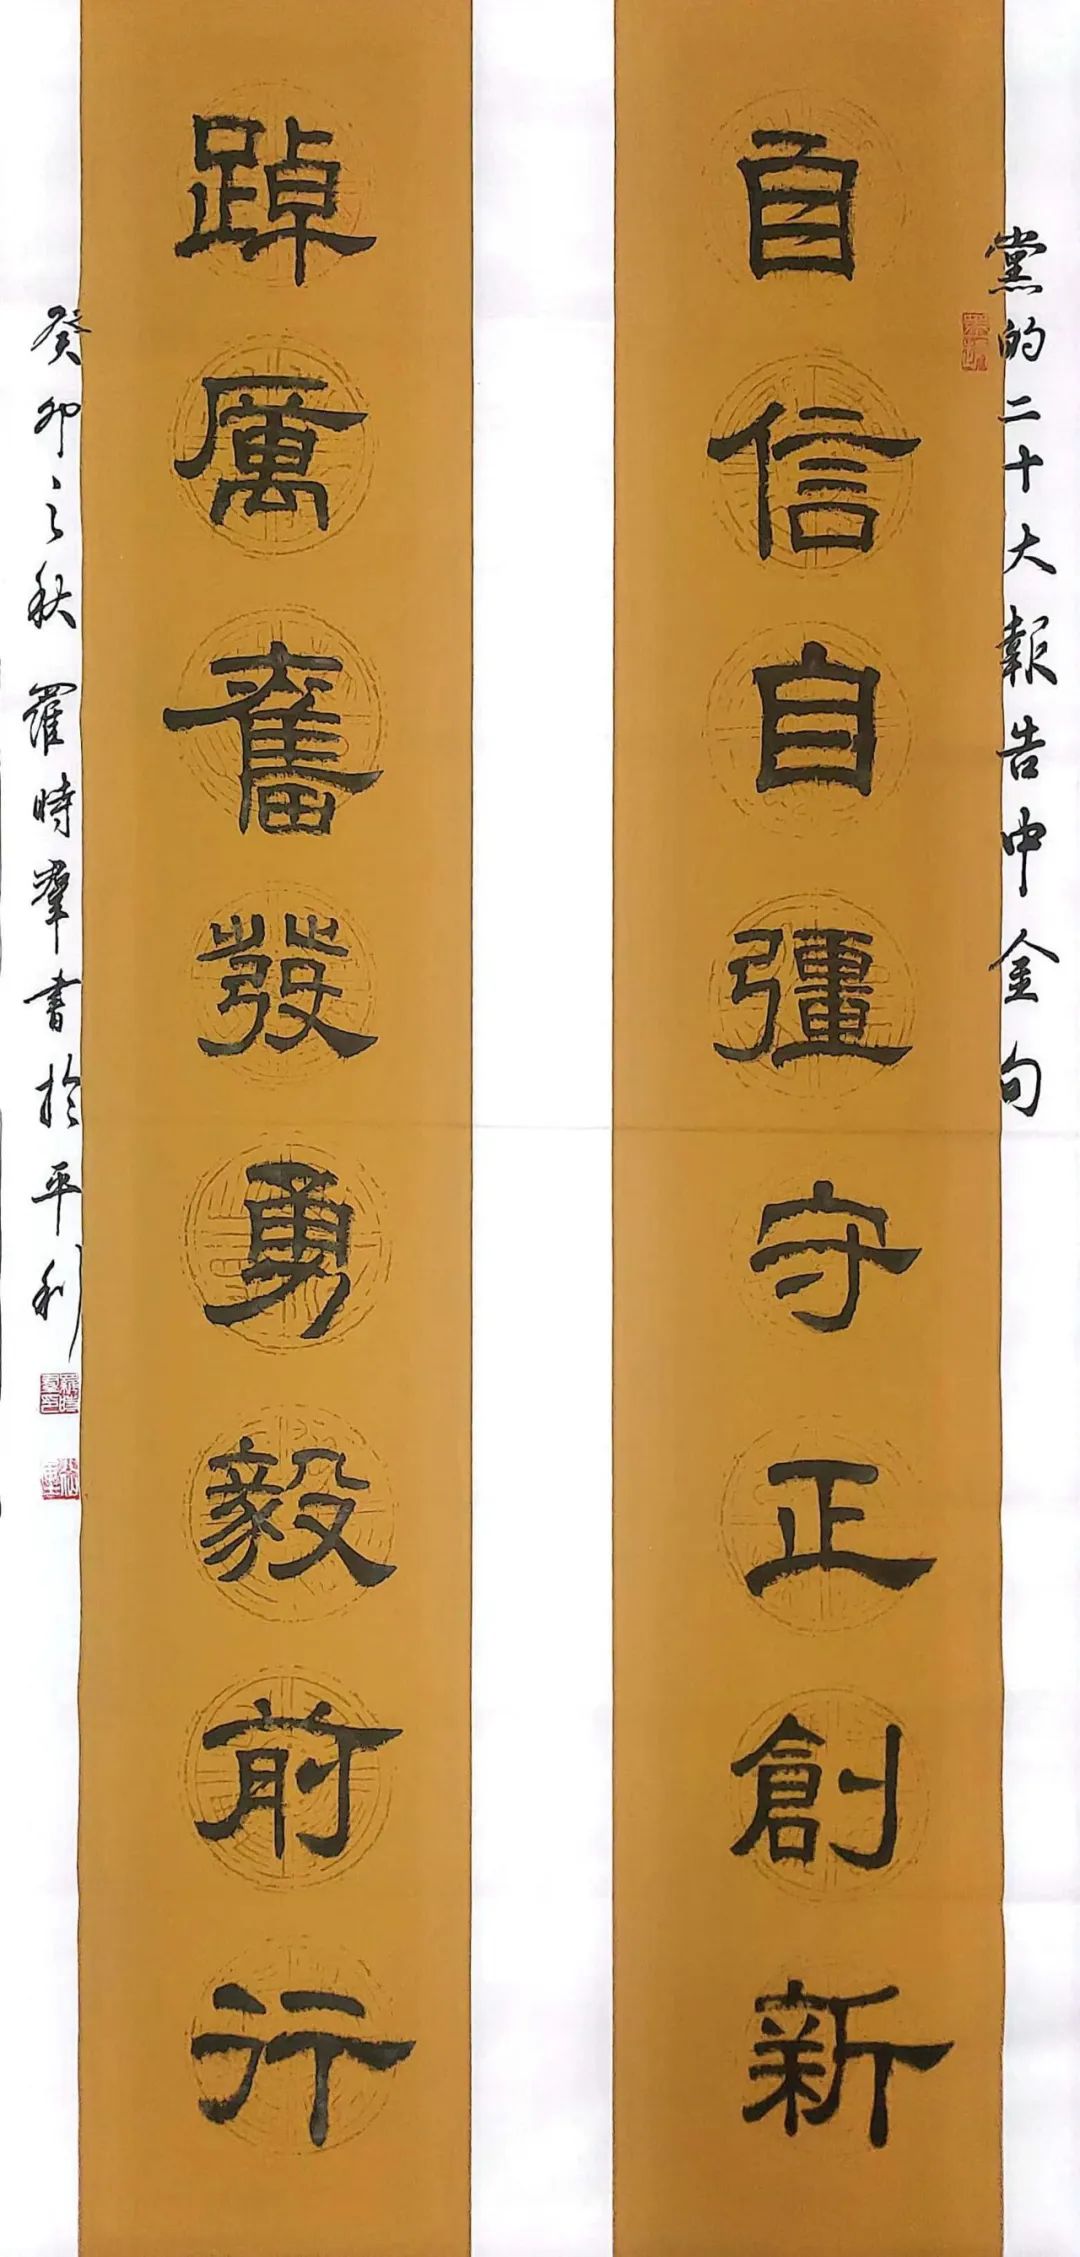 黨的二十大報告中金句
自信自彊守正創新
踔厲奮發勇毅前行
癸卯之秋羅時羣書於平利